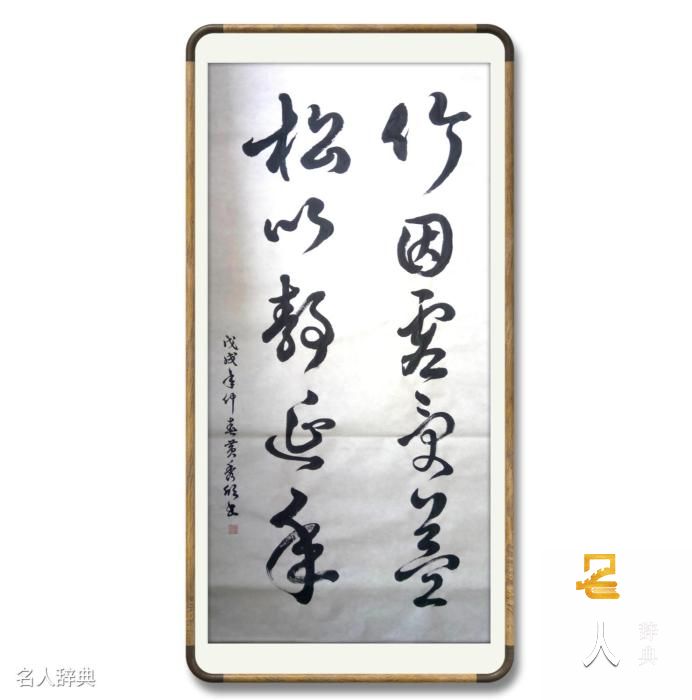 竹因虚受益
松以静延年
戊戌年仲春黄秀欣书
名人辞典
名人辞典